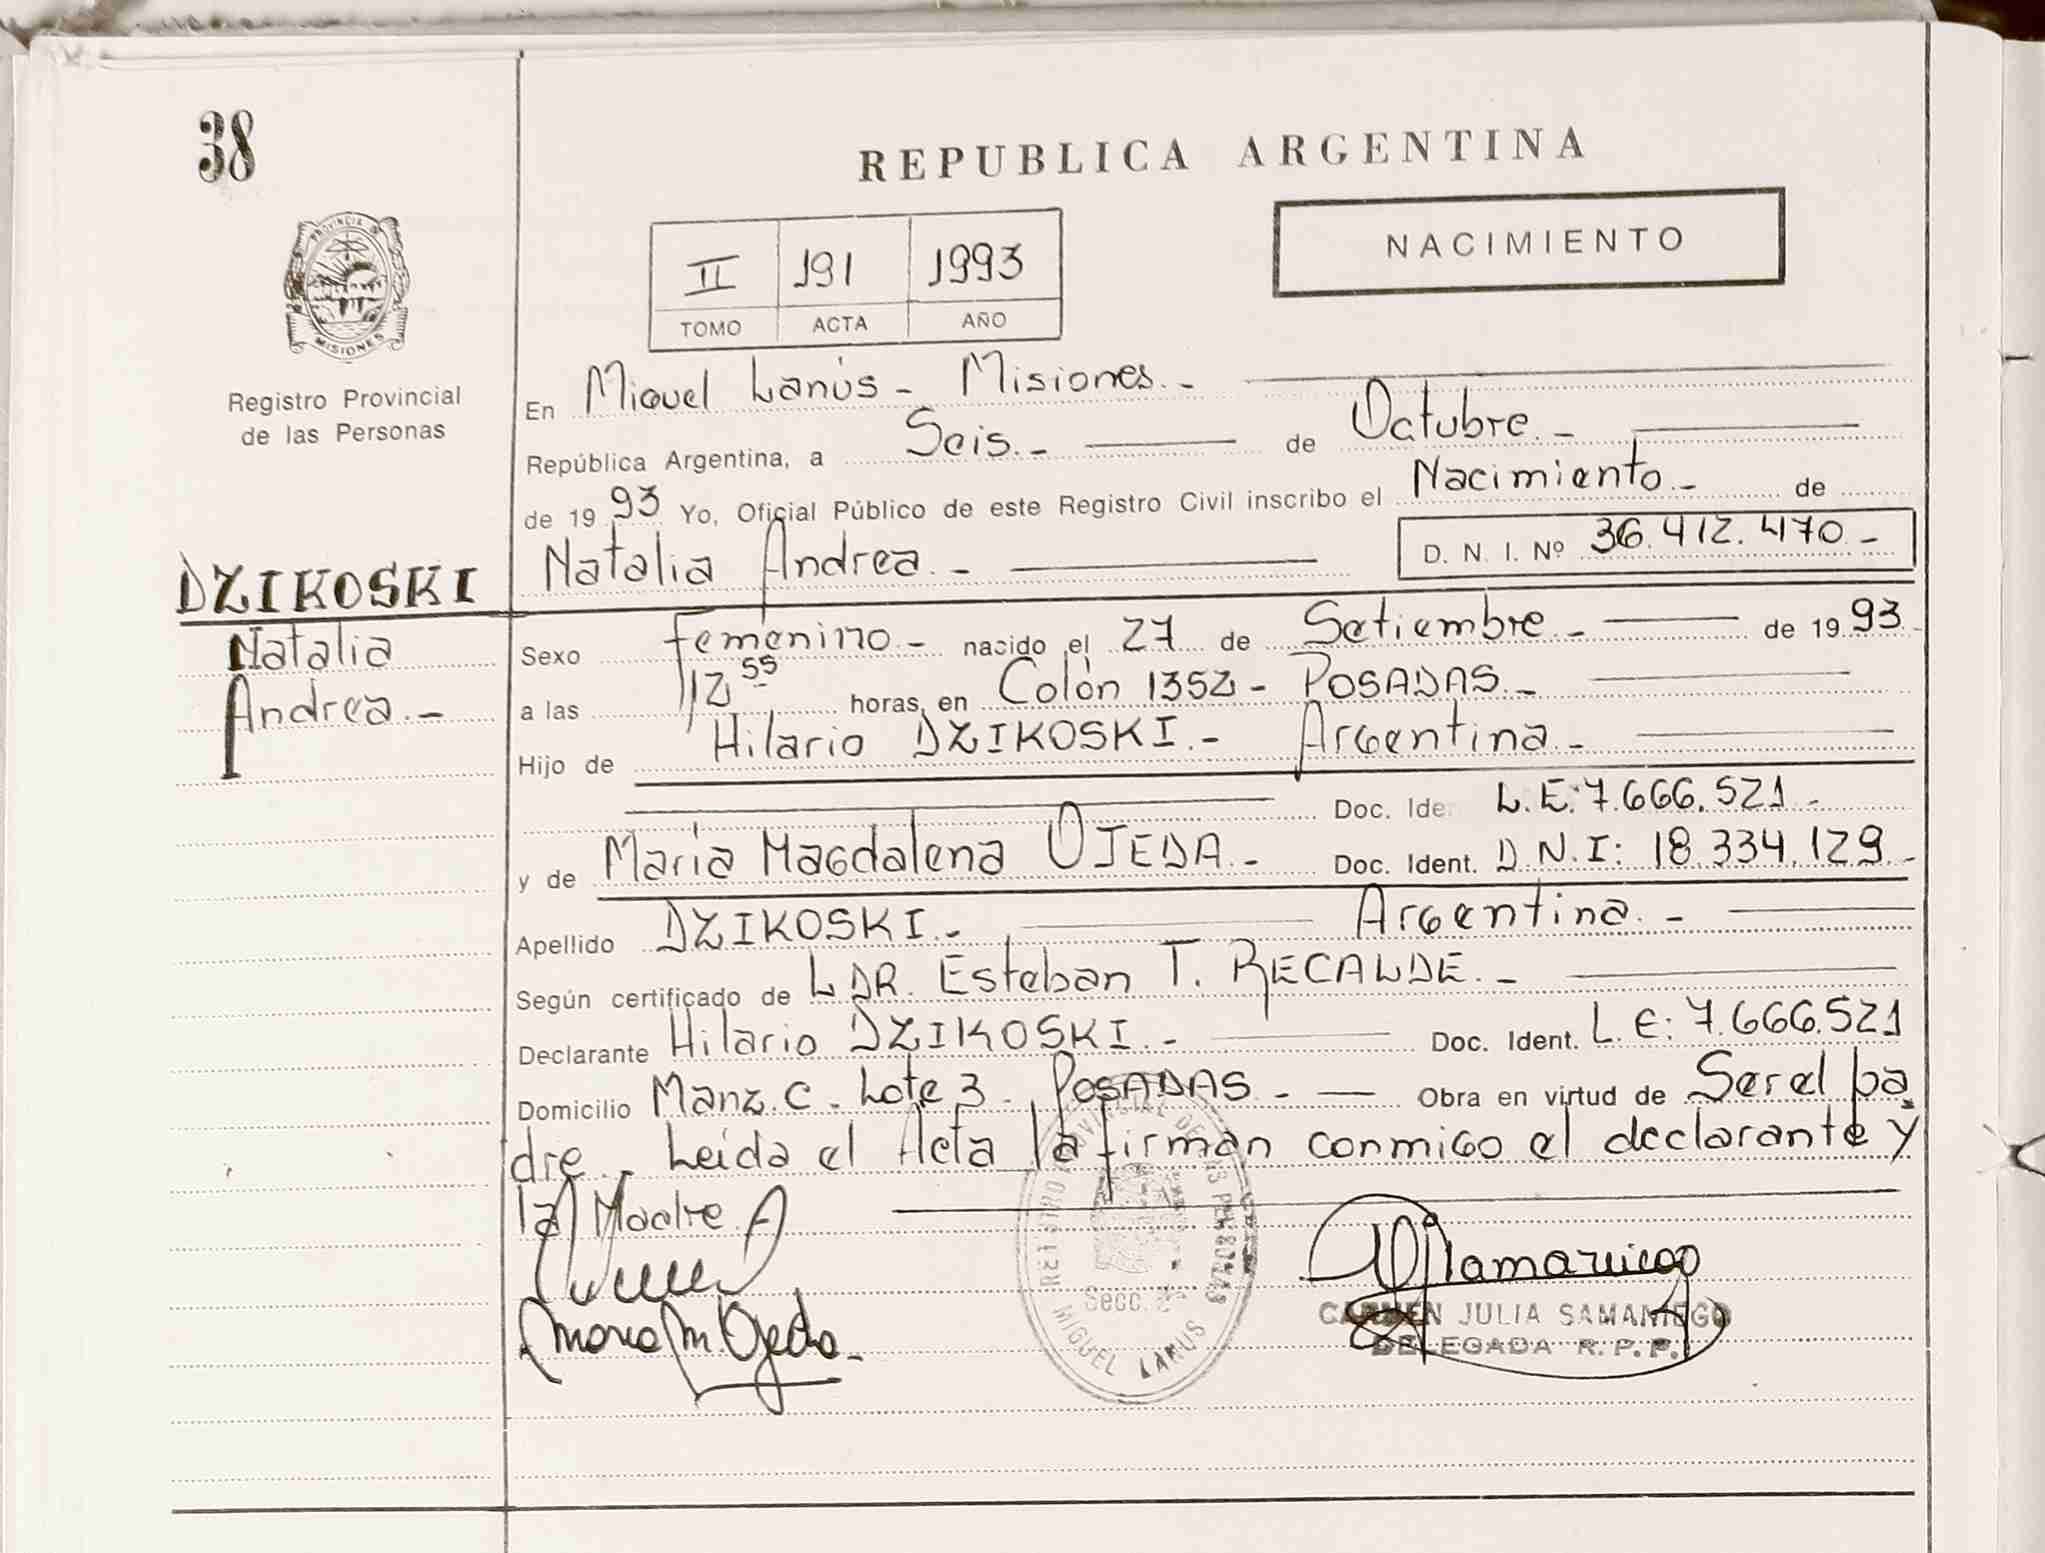 38
REPUBLICA ARGENTINA
NACIMIENTO
II 191 1993
TOMO ACTA AÑO
PROVINCIA DE MISIONES
Registro Provincial
de las Personas
En Miguel Lanús - Misiones.-
República Argentina, a Seis.- de Octubre.-
de 1993 Yo, Oficial Público de este Registro Civil inscribo el Nacimiento.- de
Natalia Andrea.- D. N. I. Nº 36.412.470.-
DZIKOSKI
Natalia
Andrea.-
Sexo femenino.- nacido el 27 de Setiembre.- de 1993
a las 12 55 horas, en Colón 1352 - POSADAS.-
Hijo de Hilario DZIKOSKI.- Argentina.-
Doc. Ide L.E: 7.666.521.-
y de María Magdalena OJEDA.- Doc. Ident. D.N.I: 18.334.129.-
Apellido DZIKOSKI.- Argentina.-
Según certificado de L DR. Esteban T. RECALDE.-
Declarante Hilario DZIKOSKI.- Doc. Ident. L.E: 7.666.521
Domicilio Manz. C. Lote 3. POSADAS.- Obra en virtud de Ser el pa
dre.- Leída el Acta la firman conmigo el declarante y
la Madre.
Maria M. Ojeda.-
REGISTRO PROVINCIAL DE LAS PERSONAS
Secc. 2ª
MIGUEL LANUS
CARMEN JULIA SAMANIEGO
DELEGADA R.P.P.